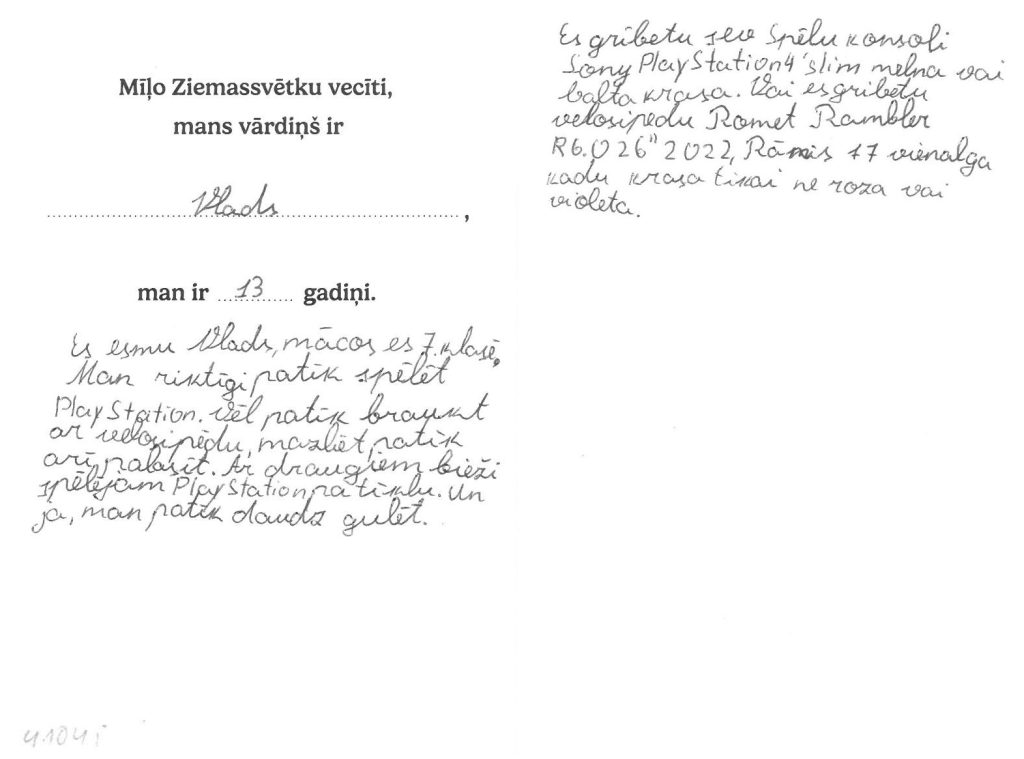 Mīļo Ziemassvētku vecīti,
mans vārdiņš ir
Vlads,
man ir 13 gadiņi.
Es esmu Vlads, mācos es 7. klasē.
Man riktīgi patīk spēlēt
PlayStation. Vēl patīk braukt
ar velosipēdu, mazliet patīk
arī palasīt. Ar draugiem bieži
spēlējam PlayStation pa tīklu. Un
jā, man patīk daudz gulēt.
41041
Es gribetu sev Spēlu konsoli
Sony PlayStation4 slim melna vai
balta krasa. Vai es gribetu
velosipedu Romet Rambler
R6.0 26" 2022, Rāmis 17 vienalga
kadu krasa tikai ne roza vai
violeta.